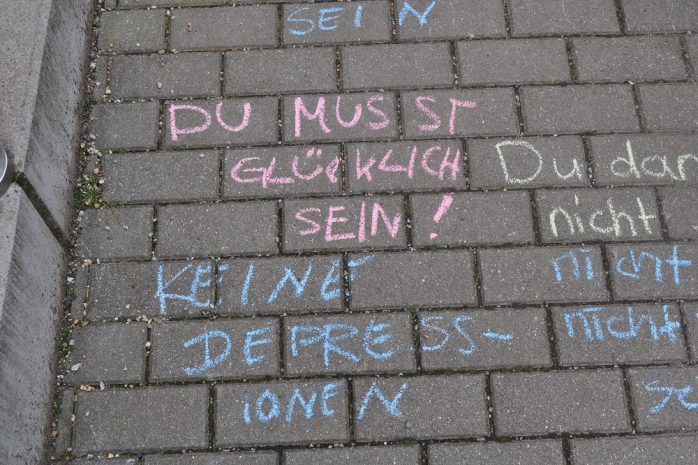 SEIN
DU MUSST
GLÜCKLICH
SEIN!
Du dar
nicht
KEINE
DEPRESS-
IONEN
nicht
nicht